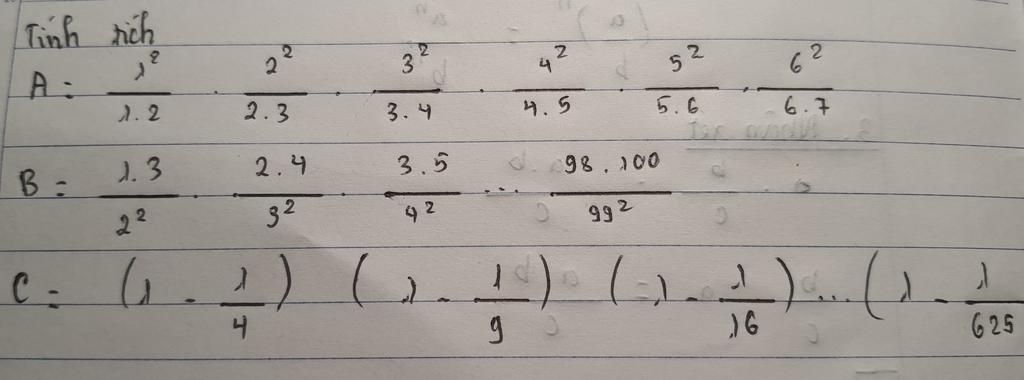 Tính tích
A = 1²/1.2 . 2²/2.3 . 3²/3.4 . 4²/4.5 . 5²/5.6 . 6²/6.7
B = 1.3/2² . 2.4/3² . 3.5/4² ... 98.100/99²
C = (1 - 1/4) (1 - 1/9) (1 - 1/16) ... (1 - 1/625